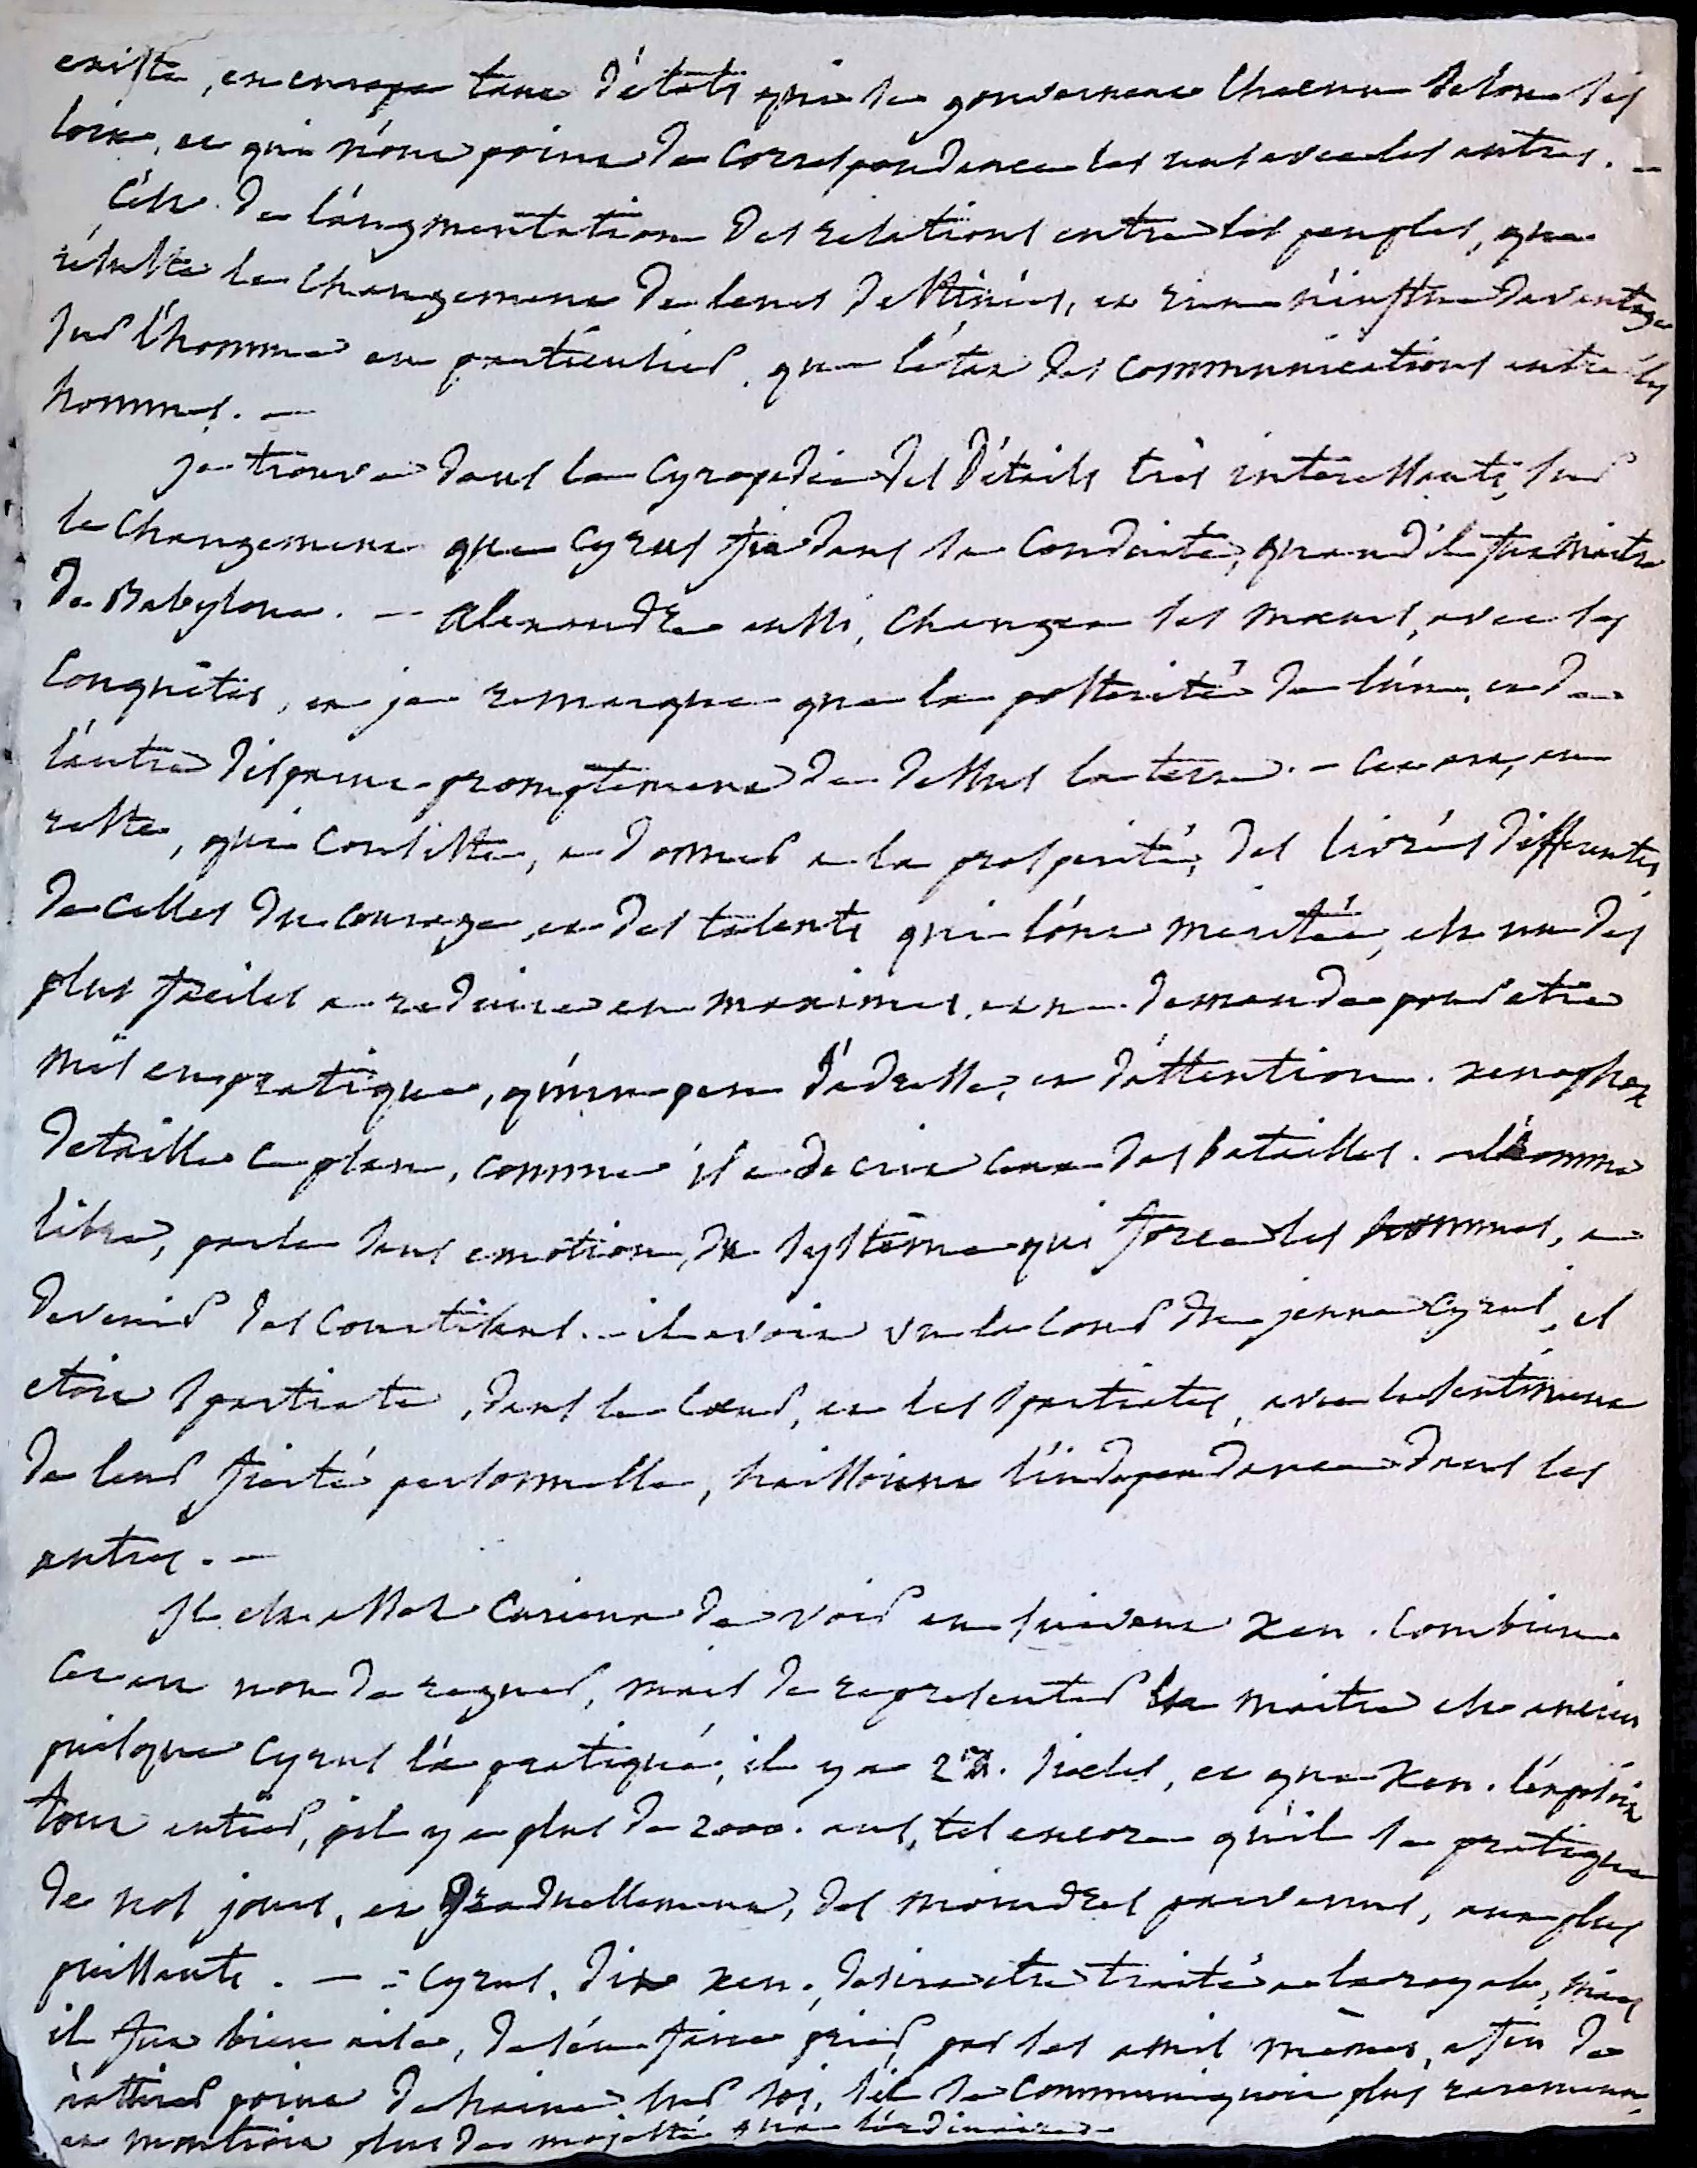 existe, en europe tant d'états qui se gouvernent chacun selon ses
loix, et qui n'ont point de correspondance les uns avec les autres. —
C'est de l'augmentation des relations entre les peuples, que
résulte le changement de leurs destinées, et rien n'influe davantage
sur l'homme en particulier, que l'état des communications entre les
hommes. —
je trouve dans la Cyropedie des détails très interessants, sur
le changement que Cyrus fit dans sa conduite, quand il fut maitre
de Babylone. — Alexandre aussi, changea ses mœurs, avec ses
conquêtes, et je remarque que la postérité de l'un, et de
l'autre disparut promptement de dessus la terre. — Cet art, au
reste, qui consiste, a donner a la prosperité, des livrées differentes
de celles du courage, et des talents qui l'ont meritée, est un des
plus faciles a reduire en maximes, et ne demande pour etre
mis en pratique, qu'un peu d'adresse, et d'attention. xenophon
detaille ce plan, comme il a decrit ceux des batailles. l'homme
libre, parle sans emotion, du systême qui force les hommes, a
devenir des courtisans. — il avoit vu la cour du jeune Cyrus, il
etoit spartiate, dans le cœur, et les spartiates, avec le sentiment
de leur fierté personnelle, haissoient l'independance dans les
autres. —
Il est assez curieux de voir en suivant Xen. combien
cet art non de regner, mais de representer le maitre est ancien
puisque Cyrus l'a pratiqué, il y a 2 siecles, et que Xen. l'exposoit
tout entier, il y a plus de 2000. ans, tel encore qu'il se pratique
de nos jours, et graduellement, des moindres parvenus, aux plus
puissants. — Cyrus, dit xen., desira etre traité a la royale, mais
il fut bien aise, de s'en faire prier par ses amis mêmes, afin de
n'attirer point de haine sur soi, s'il se communiquoit plus rarement,
et montroit plus de majesté qu'a l'ordinaire. —